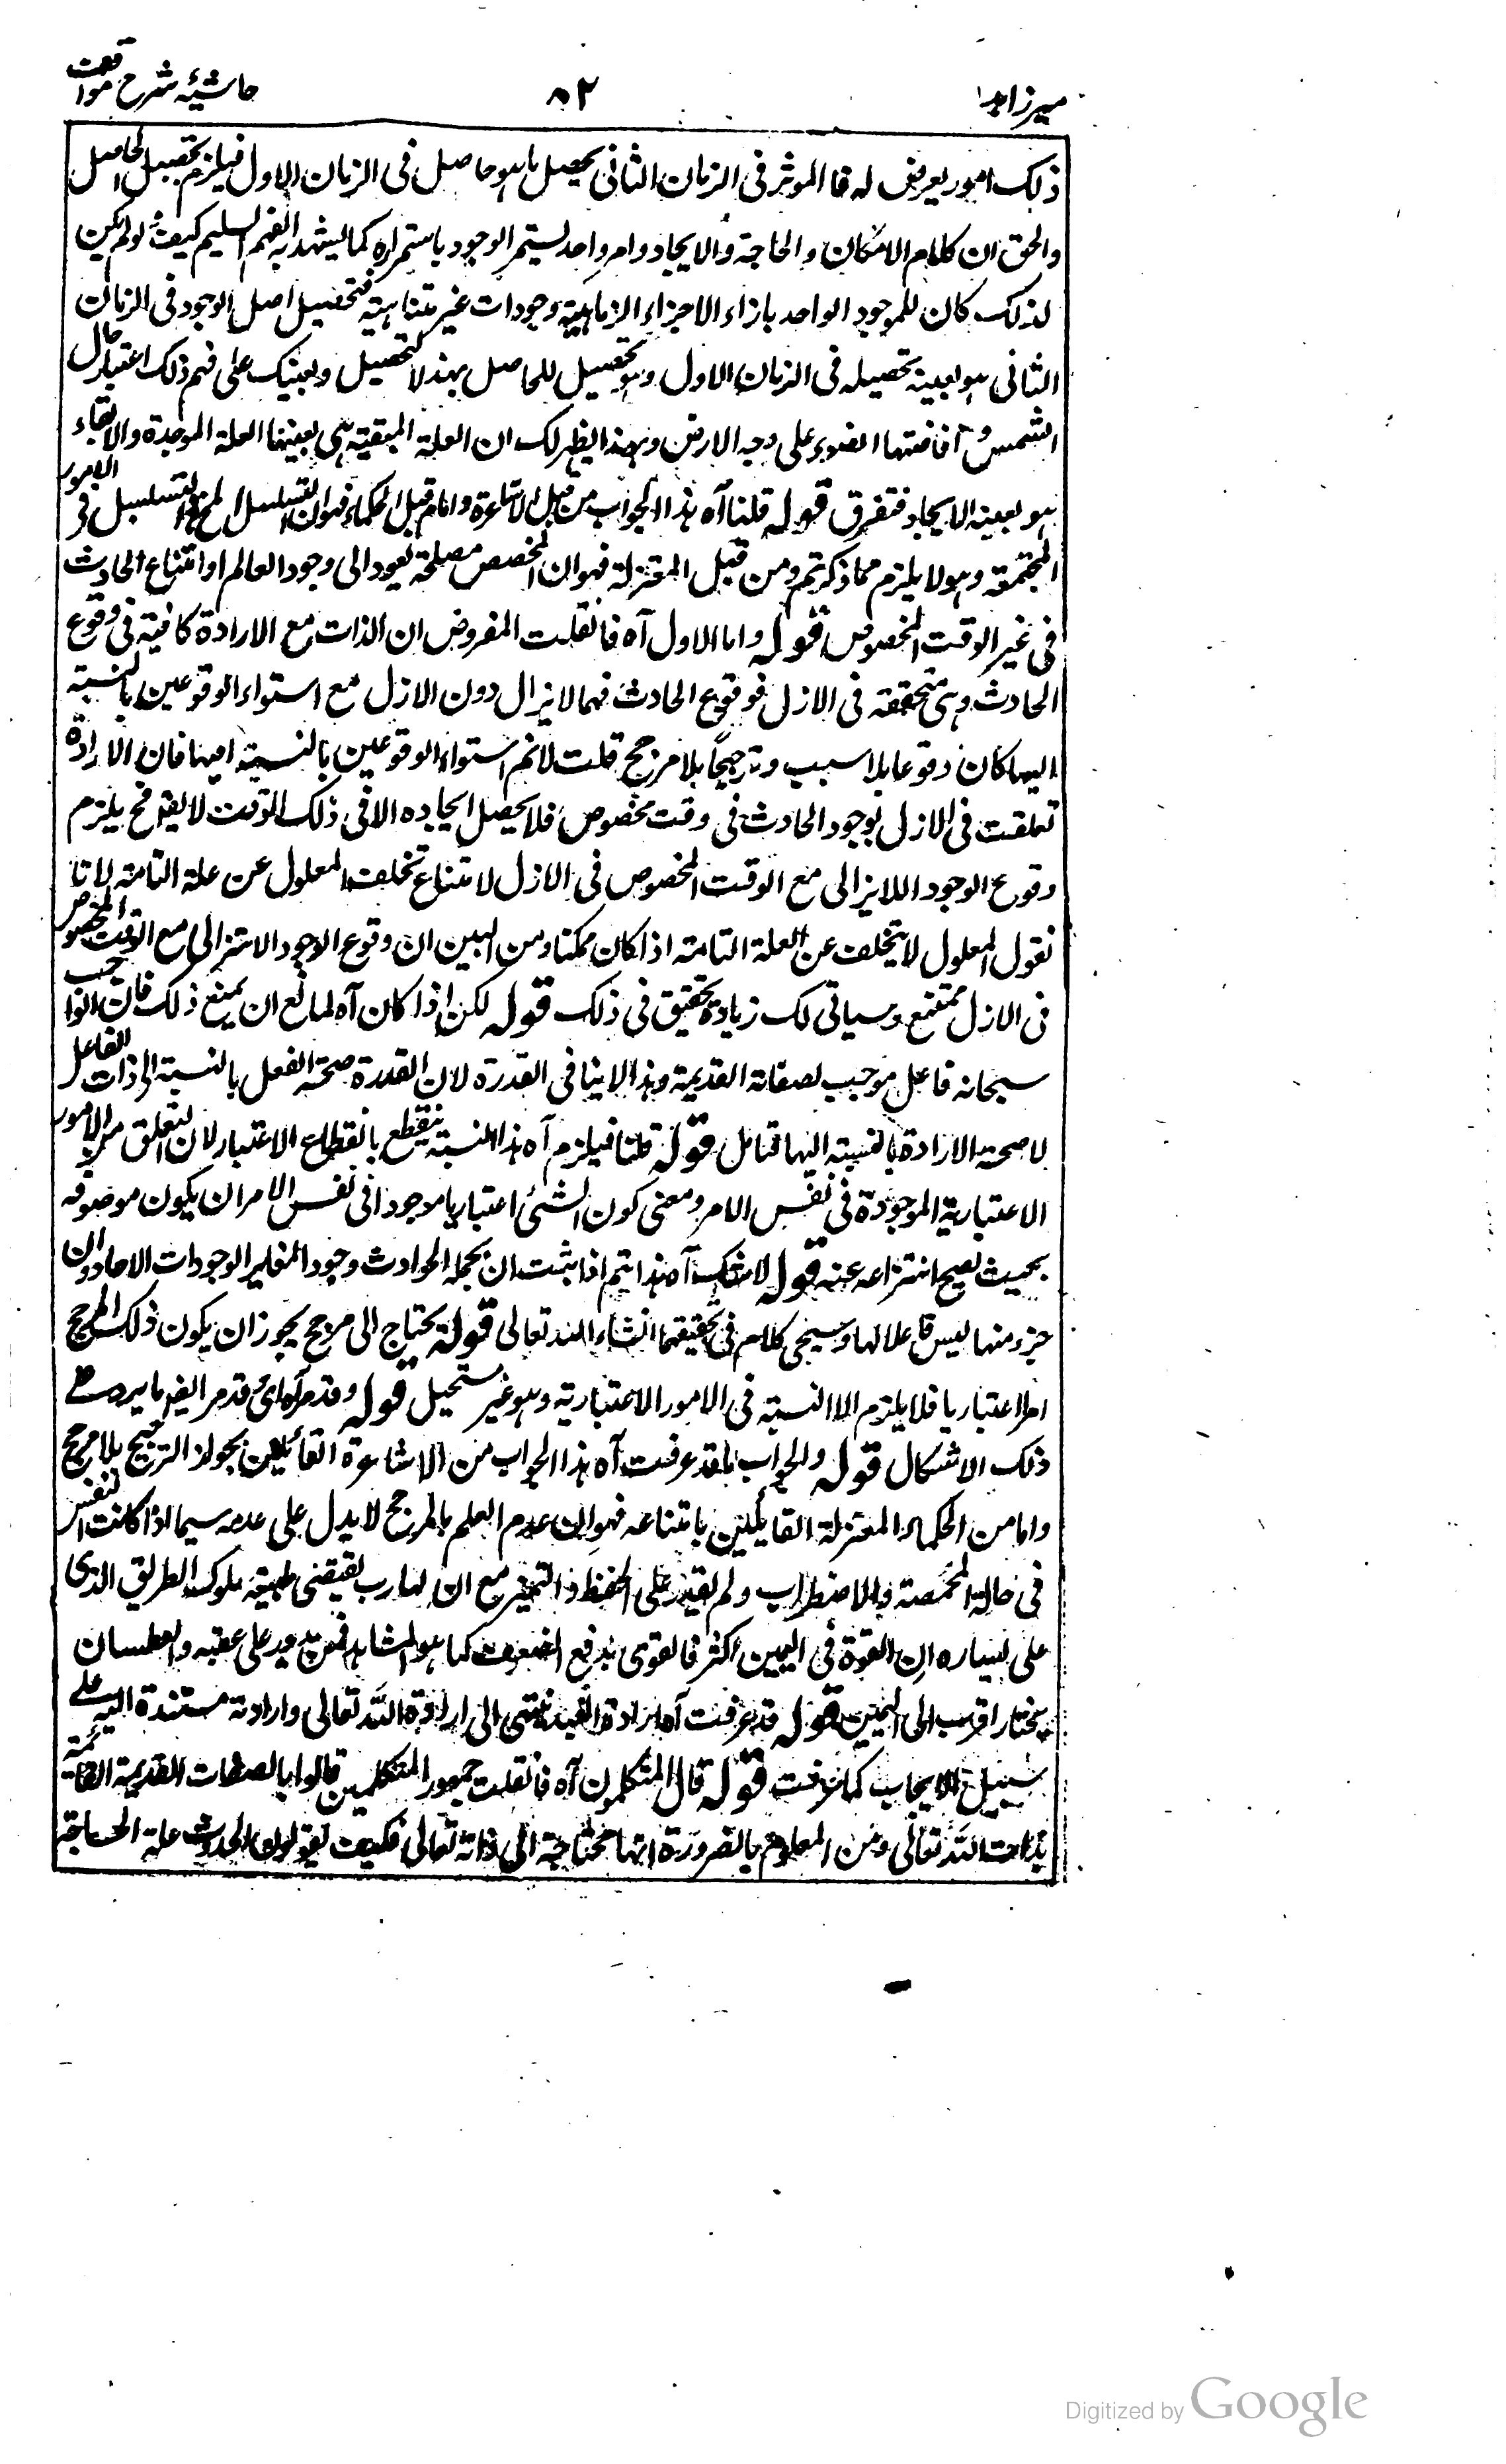 میرزاہد ۸۲ حاشیۂ شرح مواقف
ذلک امور یعرض له فالموثر فی الزمان الثانی یحصل ما ہو حاصل فی الزمان الاول فیلزم تحصیل الحاصل
والحق ان کلام الامکان والحاجة والایجاد امر واحد یستمر الوجود باستمراره کما یشہد به الفہم السلیم کیف ولو لم یکن
لذلک کان للموجود الواحد بازاء الاجزاء الزمانیة وجودات غیر متناہیة فتحصیل اصل الوجود فی الزمان
الثانی ہو بعینه تحصیله فی الزمان الاول وہو تحصیل للحاصل بہذا التحصیل ویعینک علی فہم ذلک اعتبار حال
الشمس وافاضتها الضوء علی وجه الارض وبہذا یظہر لک ان العلة المبقیة ہی بعینها العلة الموجدة والابقاء
ہو بعینه الایجاد فتفرق قوله قلنا آه ہذا الجواب من قبل الاشاعرة واما من قبل الحکماء فہو ان التسلسل المحال ہو التسلسل فی الامور
المجتمعة وہو لا یلزم مما ذکرتم ومن قبل المعتزلة فہو ان المخصص مصلحة تعود الی وجود العالم او امتناع الحادث
فی غیر الوقت المخصوص قوله واما الاول آه فان قلت المفروض ان الذات مع الارادة کافیة فی وقوع
الحادث وہی متحققة فی الازل فوقوع الحادث فیما لا یزال دون الازل مع استواء الوقوعین بالنسبة
الیها کان وقوعا بلا سبب وترجیحا بلا مرجح قلت لا نم استواء الوقوعین بالنسبة الیها فان الارادة
تعلقت فی الازل بوجود الحادث فی وقت مخصوص فلا یحصل ایجاده الا فی ذلک الوقت لا یقال فح یلزم
وقوع الوجود اللایزالی مع الوقت المخصوص فی الازل لامتناع تخلف المعلول عن علة التامة لانا
نقول المعلول لا یتخلف عن العلة التامة اذا کان ممکنا ومن البین ان وقوع الوجود اللایزالی مع الوقت المخصوص
فی الازل ممتنع وسیاتی لک زیادة تحقیق فی ذلک قوله لکن اذا کان آه لمانع ان یمنع ذلک فان الواجب
سبحانه فاعل موجب لصفاته القدیمة وہذا لا ینافی القدرة لان القدرة صحة الفعل بالنسبة الی ذات الفاعل
لا صحة الارادة بالنسبة الیها فتامل قوله قلنا فیلزم آه ہذا النسبة ینقطع بانقطاع الاعتبار لان التعلق من الامور
الاعتباریة الموجودة فی نفس الامر ومعنی کون الشئ اعتباریا موجودا فی نفس الامر ان یکون موصوفه
بحیث یصح انتزاعه عنه قوله لا شک آه ہذا یتم اذا ثبت ان لجملة الحوادث وجودا مغایر الوجودات الاحاد وان
جزء منها لیس فاعلا لها وسیجی کلام فی تحقیقها انشاء الله تعالی قوله یحتاج الی مرجح یجوز ان یکون ذلک المرجح
امرا اعتباریا فلا یلزم الا النسبة فی الامور الاعتباریة وہو غیر مستحیل قوله وقد مر آه ای وقد مر ایضا ما یرد علی
ذلک الاشکال قوله والجواب ما قد عرفت آه ہذا الجواب من الاشاعرة القائلین بجواز الترجیح بلا مرجح
واما من الحکماء والمعتزلة القائلین بامتناعه فہو ان عدم العلم بالمرجح لا یدل علی عدمه سیما اذا کانت النفس
فی حالة المخمصة والاضطراب ولم یقدر علی الحفظ والتمیز مع ان الہارب یقتضی طبیعة سلوک الطریق الذی
علی یساره لان القوة فی الیمین اکثر فالقوی یدفع الضعیف کما ہو المشاہد فیمن یدور علی عقبه والعطشان
یختار اقرب الی الیمین قوله قد عرفت آه ارادة العبد تنتہی الی ارادة الله تعالی وارادته مستندة الیه علی
سبیل الایجاب کما عرفت قوله قال المتکلمون آه فان قلت جمہور المتکلمین قالوا بالصفات القدیمة القائمة
بذات الله تعالی ومن المعلوم بالضرورة انها محتاجة الی ذاته تعالی فکیف یقولون الحدوث علة الحاجة
Digitized by Google